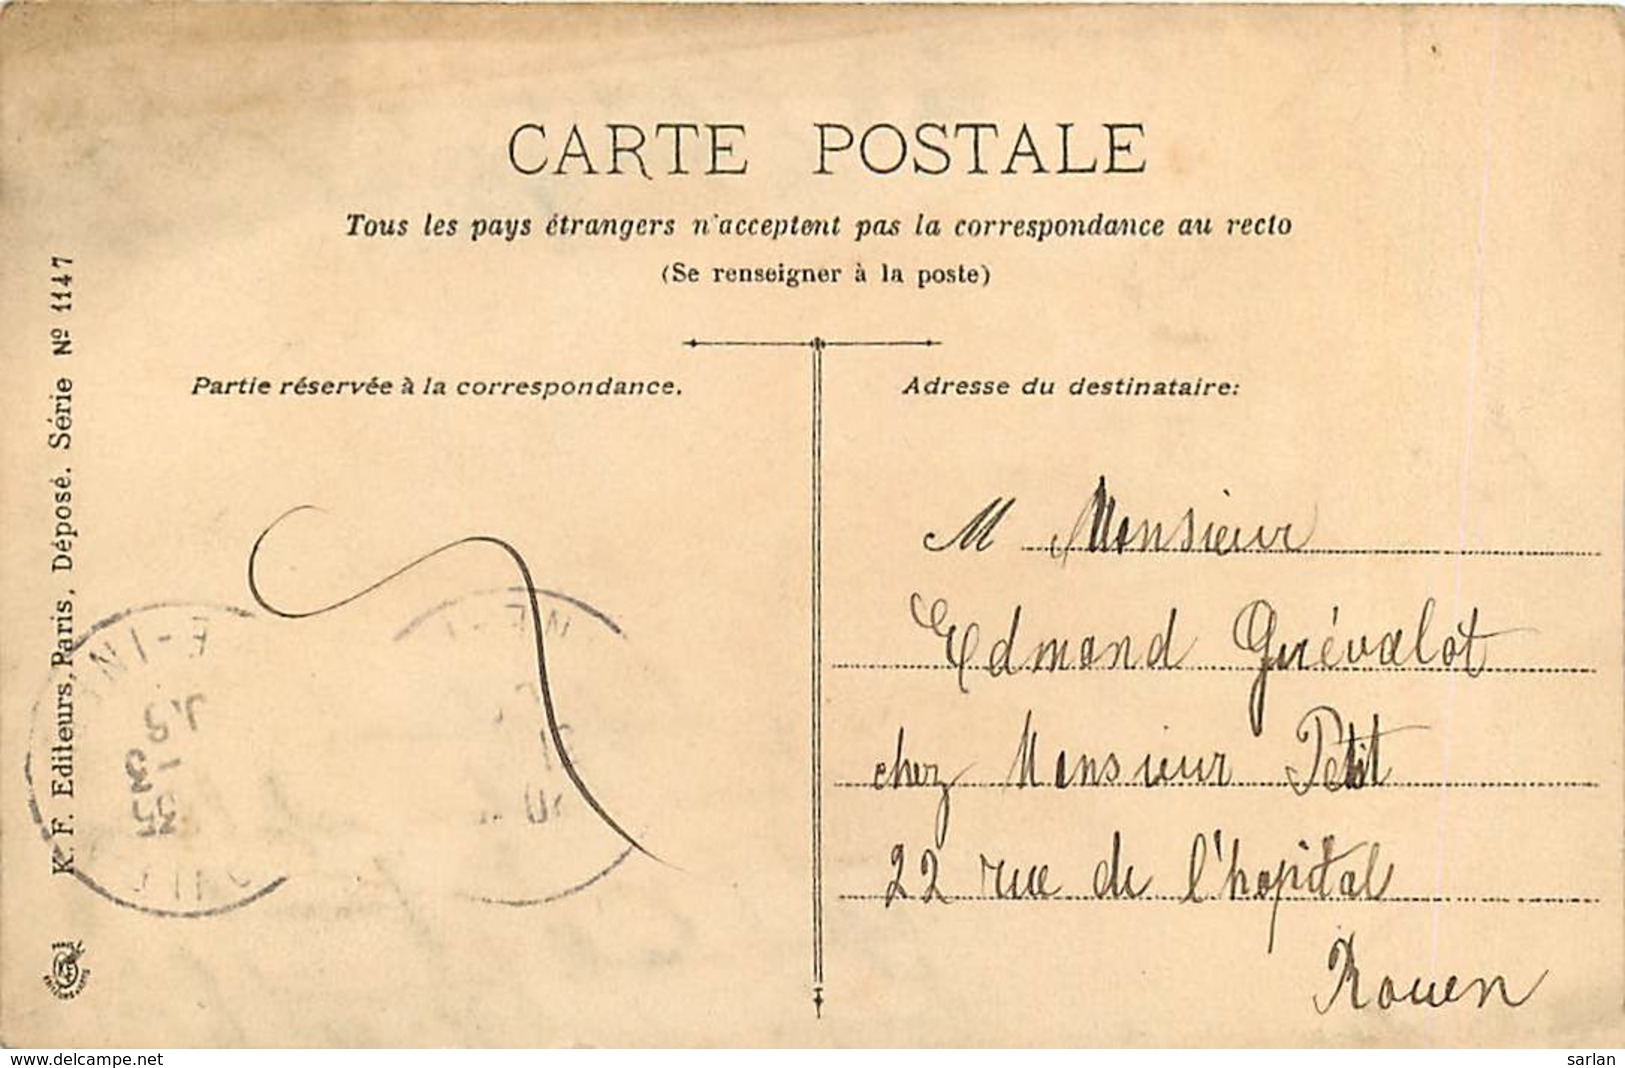 CARTE POSTALE
Tous les pays étrangers n'acceptent pas la correspondance au recto
(Se renseigner à la poste)
Partie réservée à la correspondance.
Adresse du destinataire:
M Monsieur
Edmand Guévalot
chez Monsieur Petit
22 rue de l'hopital
Rouen
K. F. Editeurs, Paris, Déposé. Série Nº 1147
www.delcampe.net
sarlan